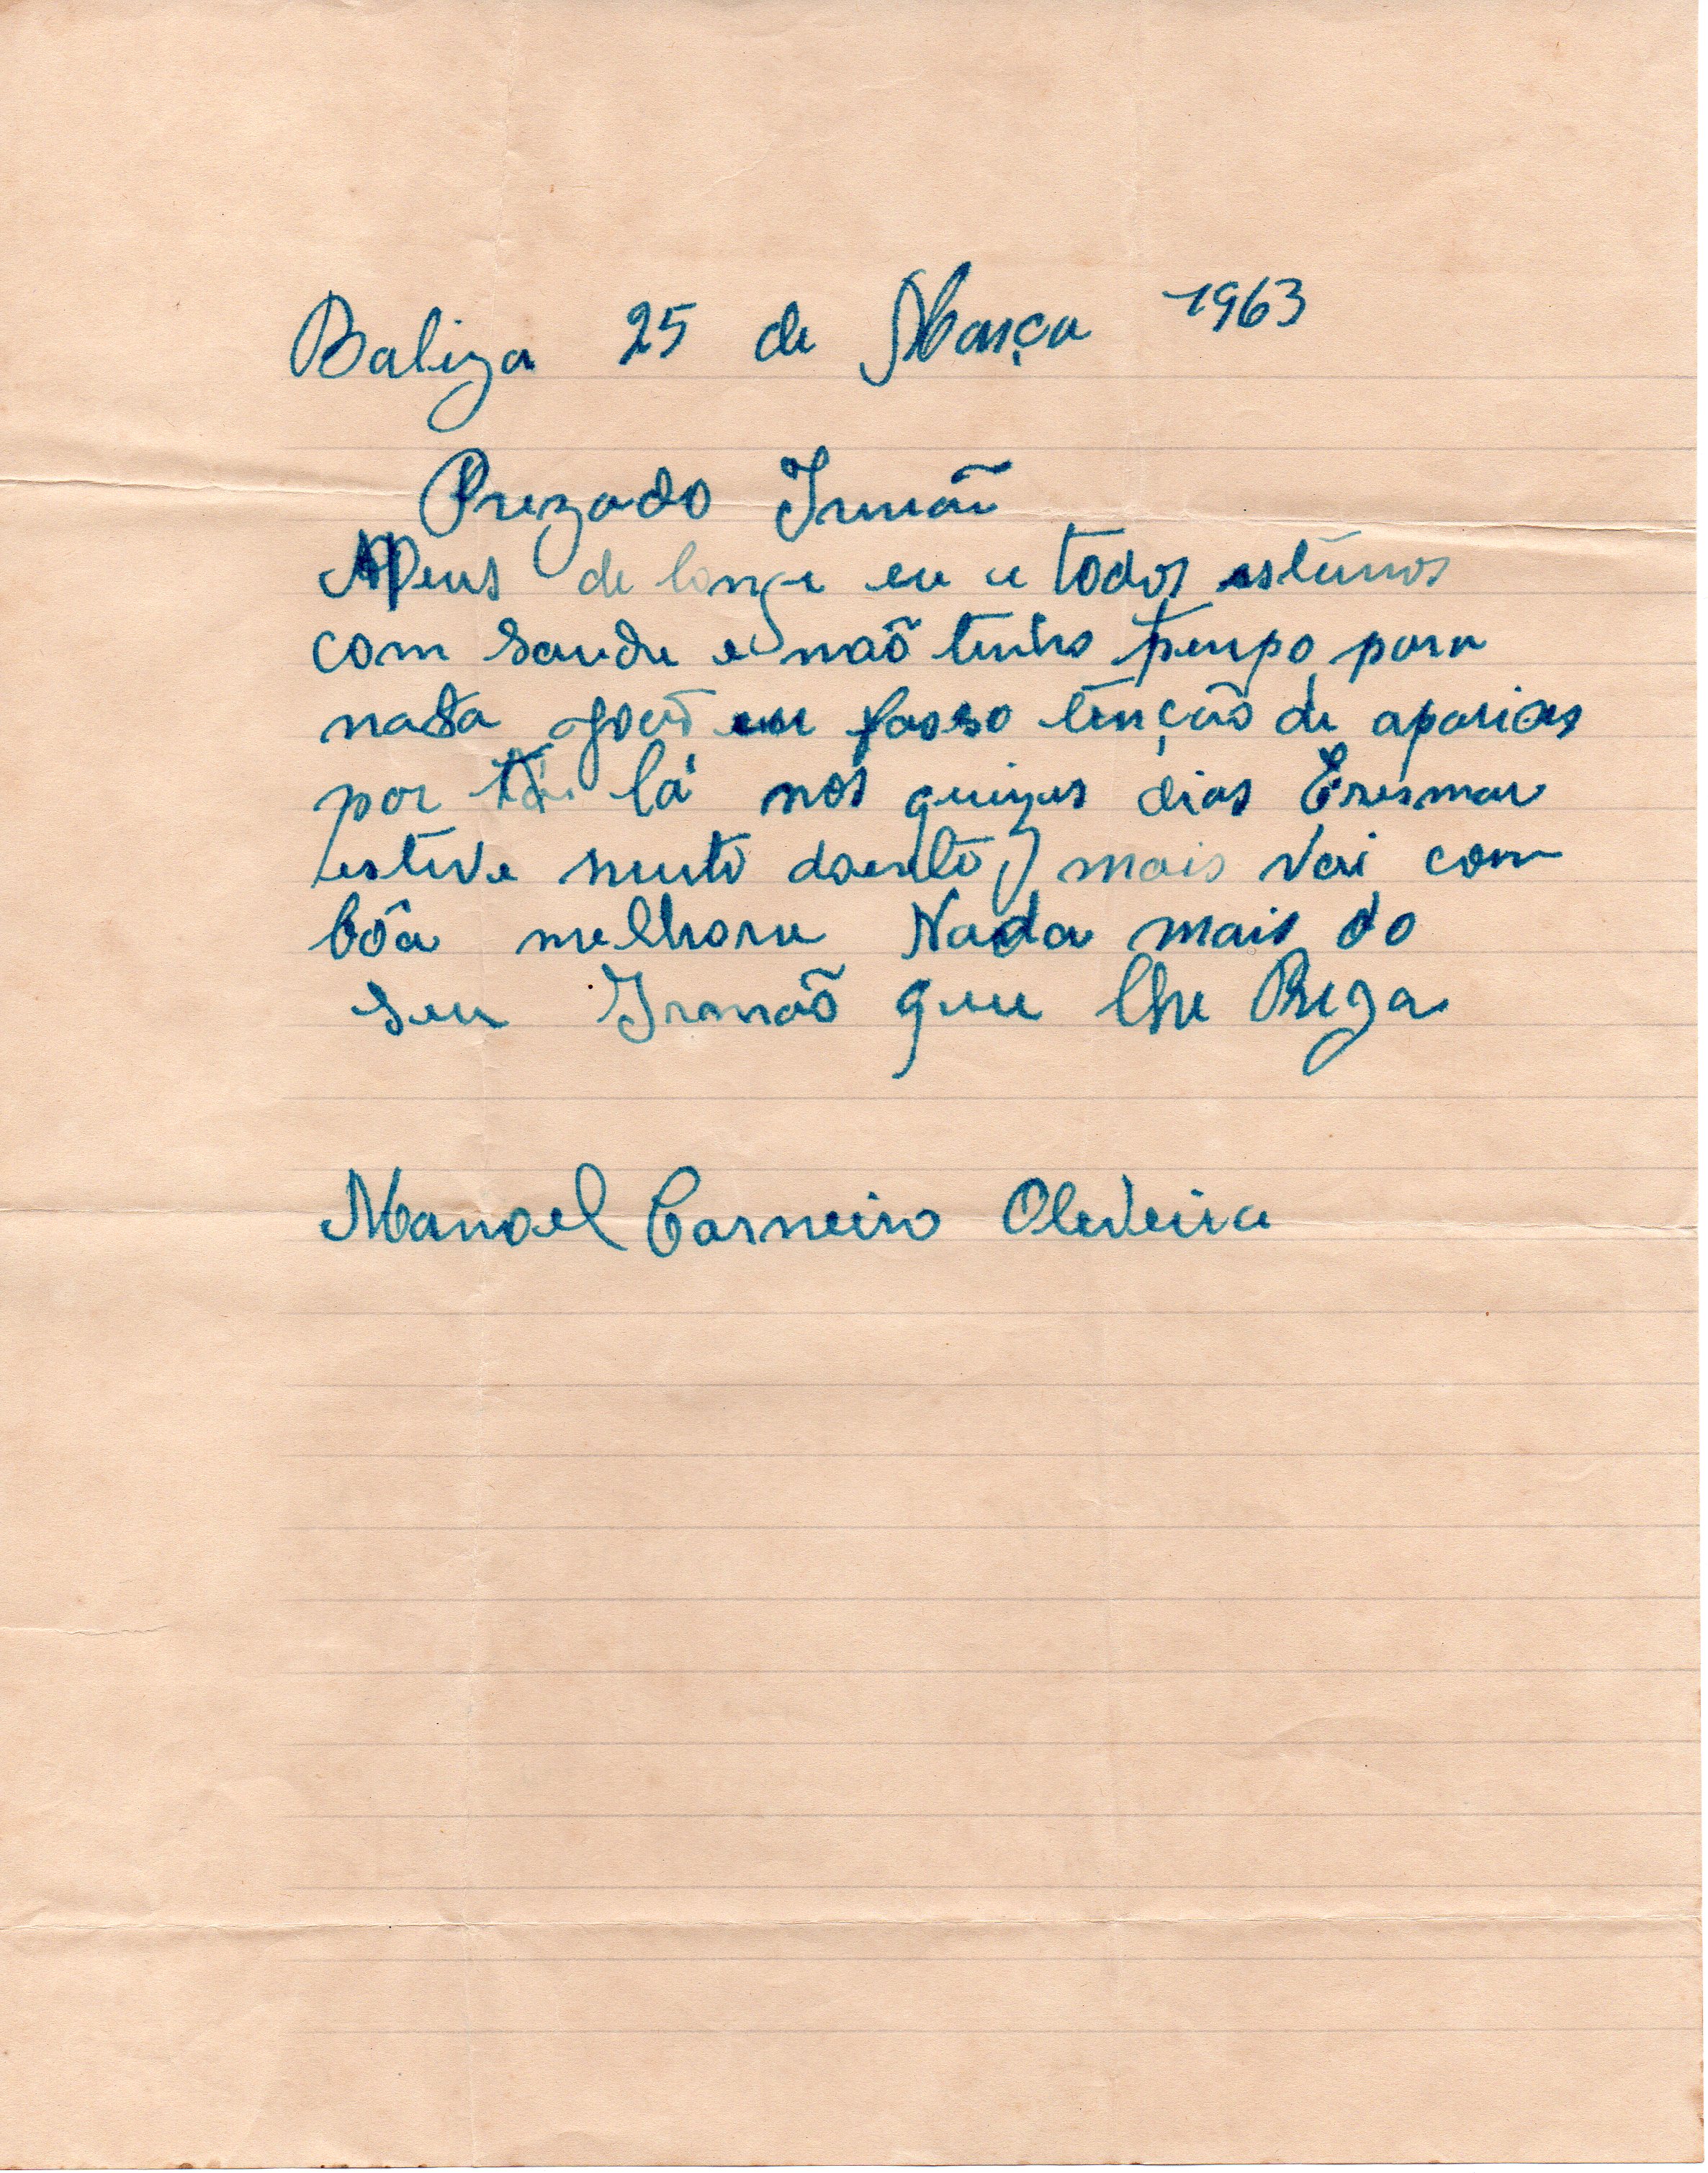 Baliza 25 de Março 1963
Prezado Irmão
ADeus de longe eu e todos estimos
com Saude e não tenho tempo para
nada João eu fasso tenção de aparicer
por lá nos quinzes dias Eresmar
estive muito doente, mais vai com
bôa melhora Nada mais do
seu Irmão que lhe Preza
Manoel Carneiro Oliveira